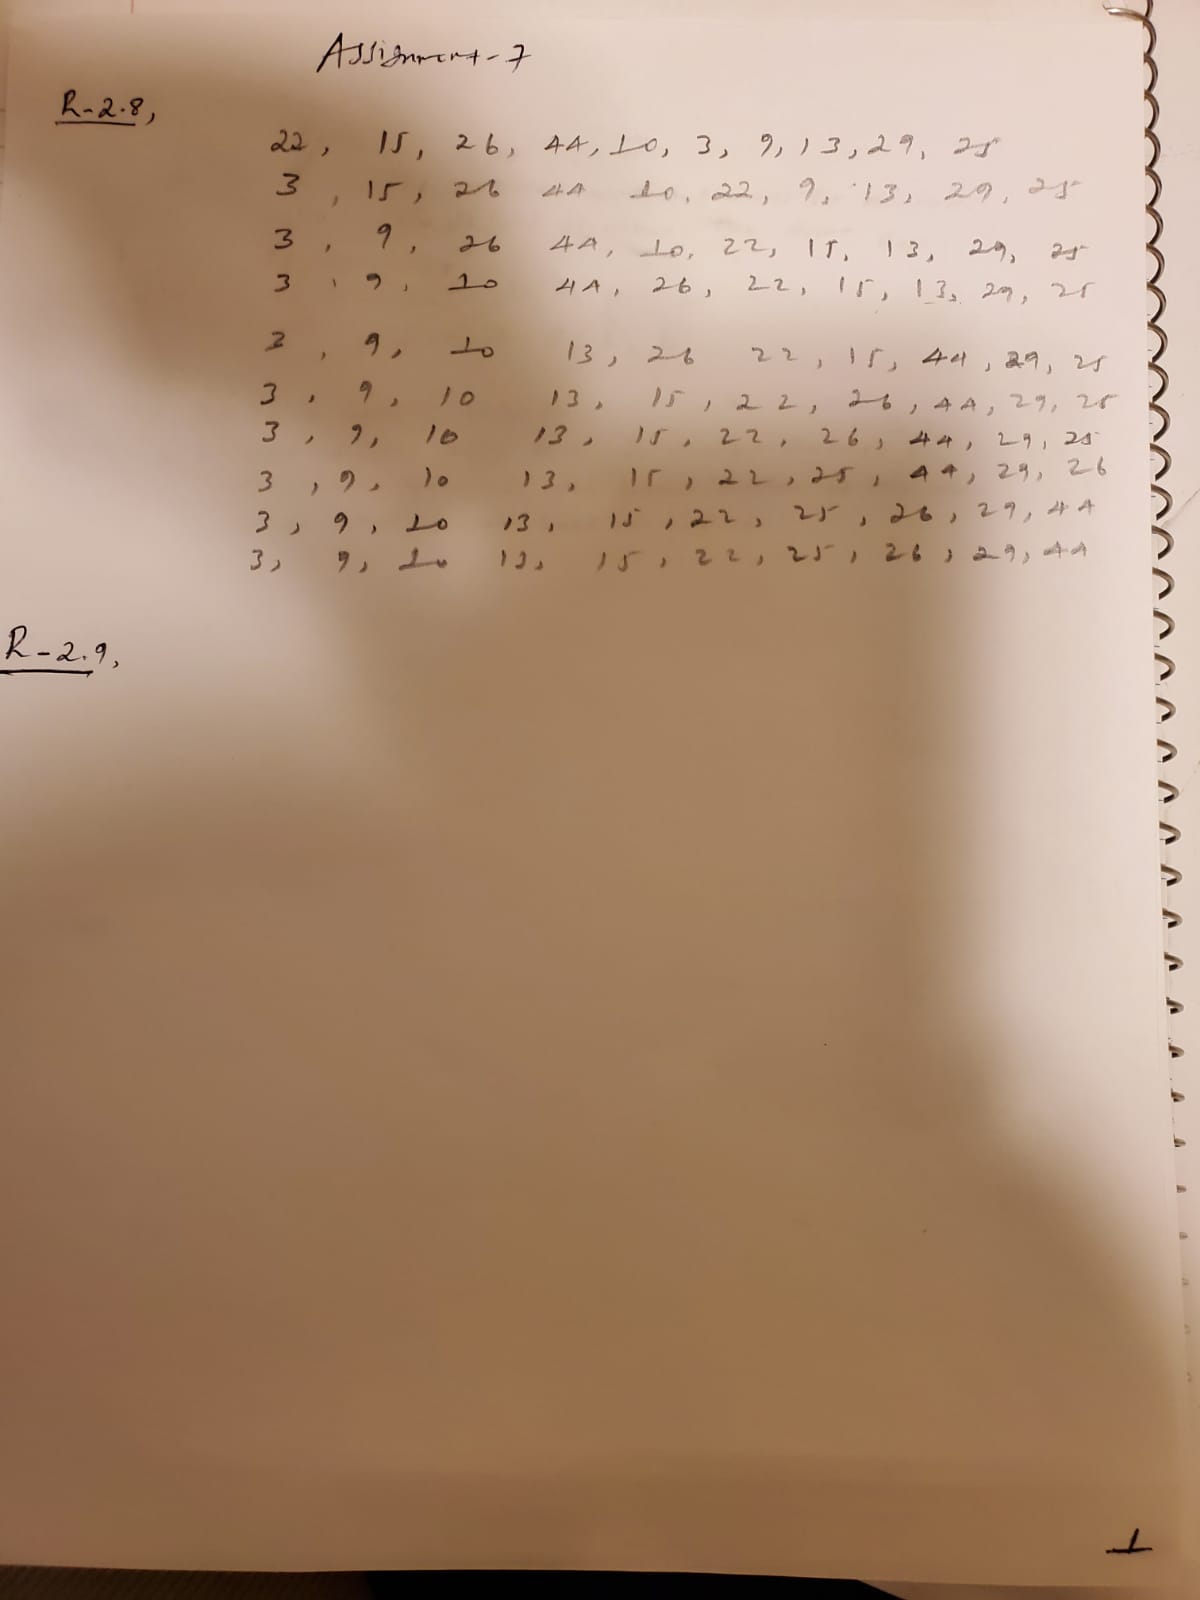 Assignment-7
R-2.8,
22, 15, 26, 44, 10, 3, 9, 13, 29, 25
3, 15, 26 44 10, 22, 9, 13, 29, 25
3, 9, 26 44, 10, 22, 15, 13, 29, 25
3, 9, 10 44, 26, 22, 15, 13, 29, 25
3, 9, 10 13, 26 22, 15, 44, 29, 25
3, 9, 10 13, 15, 22, 26, 44, 29, 25
3, 9, 10 13, 15, 22, 26, 44, 29, 25
3, 9, 10 13, 15, 22, 25, 44, 29, 26
3, 9, 10 13, 15, 22, 25, 26, 29, 44
3, 9, 10 13, 15, 22, 25, 26, 29, 44
R-2.9,
1